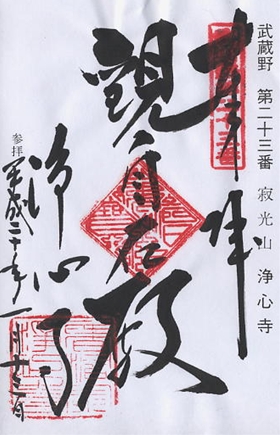 武蔵野 第二十三番 寂光山 浄心寺
奉拝
觀自在殿
浄心寺
参拝
平成二十年一月十三日